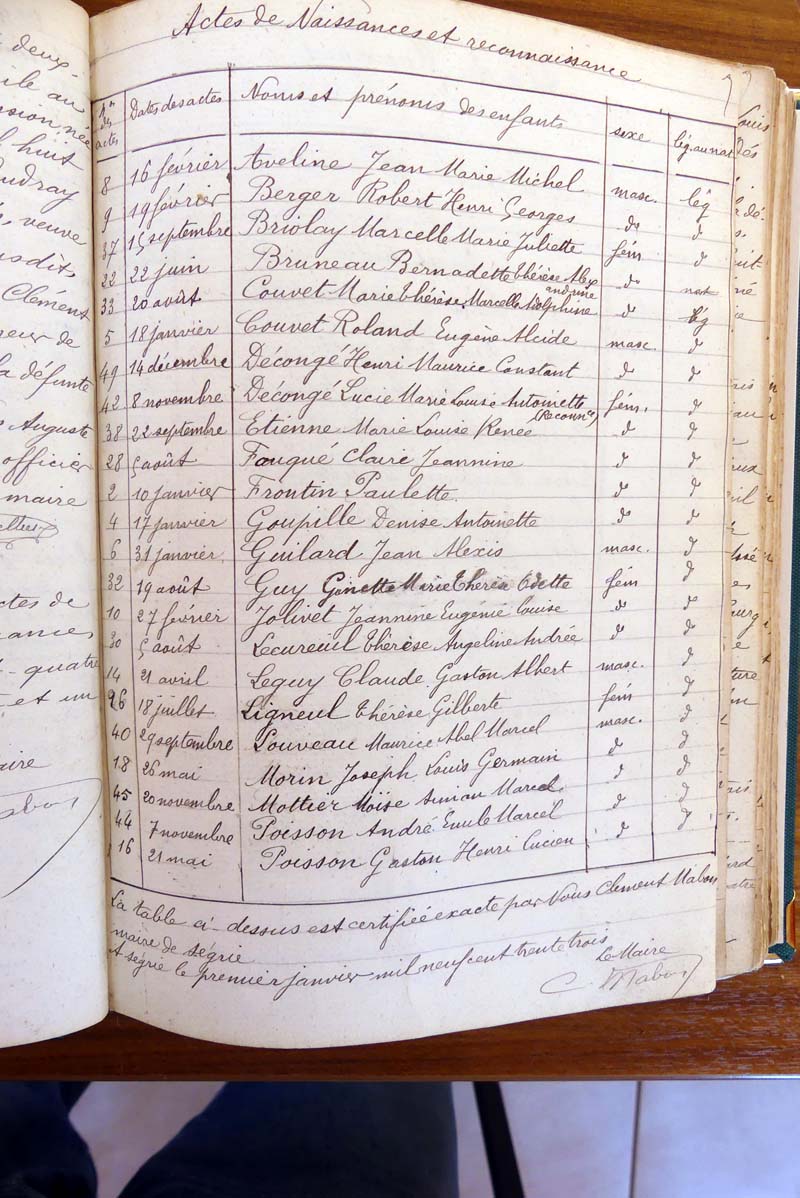 deux
ile au
née
huit
veuve
susdit
Clément
de
la défunte
Auguste
officier
maire
actes de
quatre
et un
aire
Actes de Naissances et reconnaissance
Nos des actes Dates des actes Noms et prénoms des enfants sexe lég. ou nat
8 16 février Aveline Jean Marie Michel masc. lég
9 19 février Berger Robert Henri Georges d d
37 15 septembre Briolay Marcelle Marie Juliette fém d
22 22 juin Bruneau Bernadette Thérèse Alexandrine d nat
33 20 août Couvet Marie Thérèse Marcelle Adolphine d lég
5 18 janvier Couvet Roland Eugène Alcide masc. d
49 14 décembre Décongé Henri Maurice Constant d d
42 8 novembre Décongé Lucie Marie Louise Antoinette fém. d
38 22 septembre Etienne Marie Louise Renée (Reconnce) d d
28 5 août Fouqué Claire Jeannine d d
2 10 janvier Frontin Paulette d d
4 17 janvier Goupille Denise Antoinette d d
6 31 janvier Guilard Jean Alexis masc. d
32 19 août Guy Ginette Marie Thérèse Odette fém d
10 27 février Jolivet Jeannine Eugénie Louise d d
30 5 août Lecureuil Thérèse Angeline Andrée d d
14 21 avril Leguy Claude Gaston Albert masc. d
26 18 juillet Ligneul Thérèse Gilberte fém d
40 29 septembre Louveau Maurice Abel Marcel masc. d
18 26 mai Morin Joseph Louis Germain d d
45 20 novembre Mottier Moïse Marcel d d
44 7 novembre Poisson André Emile Marcel d d
16 21 mai Poisson Gaston Henri Lucien d d
La table ci-dessus est certifiée exacte par Nous Clement Mabou
maire de ségrie
A ségrie le premier janvier mil neuf cent trente trois
Le Maire
C. Mabou